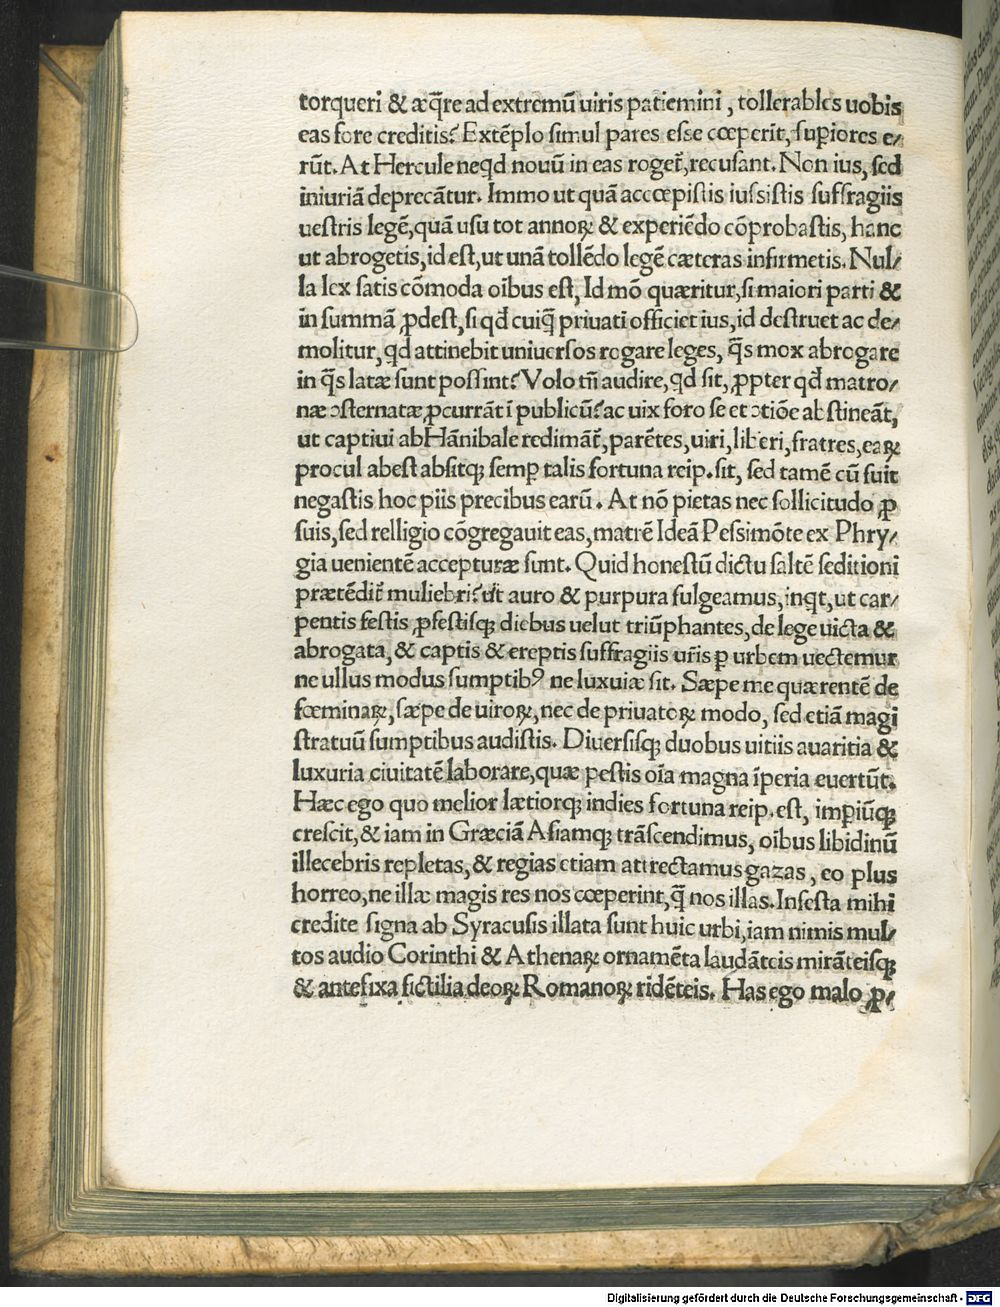 torqueri & æq̃re ad extremũ uiris patiemini, tollerabiles uobis
eas fore creditis? Extẽplo simul pares esse cœperit, suꝑiores e/
rũt. At Hercule neqd nouũ in eas roget᷑, recusant. Non ius, sed
iniuriã deprecãtur. Immo ut quã accœpistis iussistis suffragiis
uestris legẽ, quã usu tot annoꝝ & experiẽdo cõprobastis, hanc
ut abrogetis, id est, ut unã tollẽdo legẽ cæteras infirmetis. Nul/
la lex satis cõmoda oibus est, Id mõ quæritur, si maiori parti &
in summã ꝓdest, si qd cuiq̃ priuati officiet ius, id destruet ac de/
molitur, qd attinebit uniuersos rogare leges, q̃s mox abrogare
in q̃s latæ sunt possint? Volo tñ audire, qd sit, ꝓpter qd matro/
næ ↄsternatæ ꝓcurrãt ĩ publicũ? ac uix foro se et ↄtiõe abstineãt,
ut captiui ab Hãnibale redimãt᷑, parẽtes, uiri, liberi, fratres, eaꝝ
procul abest absitqꝫ semꝑ talis fortuna reip. sit, sed tamẽ cũ suit
negastis hoc piis precibus earũ. At nõ pietas nec sollicitudo ꝓ
suis, sed relligio cõgregauit eas, matrẽ Ideã Pessimõte ex Phry/
gia uenientẽ accepturæ sunt. Quid honestũ dictu saltẽ seditioni
prætẽdit᷑ muliebri? ut auro & purpura fulgeamus, inqt, ut car/
pentis festis ꝓfestisqꝫ diebus uelut triũphantes, de lege uicta &
abrogata, & captis & ereptis suffragiis ur̃is ꝑ urbem uectemur
ne ullus modus sumptibꝰ ne luxuiæ sit. Sæpe me quærentẽ de
fœminaꝝ, sæpe de uiroꝝ, nec de priuatoꝝ modo, sed etiã magi
stratuũ sumptibus audistis. Diuersisqꝫ duobus uitiis auaritia &
luxuria ciuitatẽ laborare, quæ pestis oĩa magna ĩperia euertũt.
Hæc ego quo melior lætiorqꝫ indies fortuna reip. est, imꝑiũqꝫ
crescit, & iam in Græciã Asiamqꝫ trãscendimus, oibus libidinũ
illecebris repletas, & regias etiam attrectamus gazas, eo plus
horreo, ne illæ magis res nos cœperint, q̃ nos illas. Infesta mihi
credite signa ab Syracusis illata sunt huic urbi, iam nimis mul/
tos audio Corinthi & Athenaꝝ ornamẽta laudãteis mirãteisqꝫ
& antefixa fictilia deoꝝ Romanoꝝ ridẽteis. Has ego malo ꝓ/
Digitalisierung gefördert durch die Deutsche Forschungsgemeinschaft - DFG